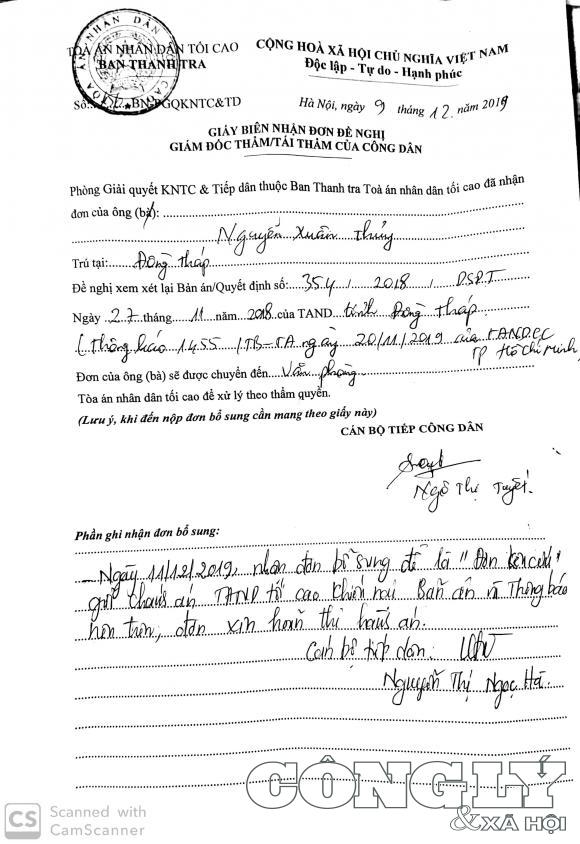 TOÀ ÁN NHÂN DÂN TỐI CAO
BAN THANH TRA
CỘNG HOÀ XÃ HỘI CHỦ NGHĨA VIỆT NAM
Độc lập - Tự do - Hạnh phúc
Số: BN-PGQKNTC&TD
Hà Nội, ngày 9 tháng 12 năm 2019
GIẤY BIÊN NHẬN ĐƠN ĐỀ NGHỊ
GIÁM ĐỐC THẨM/TÁI THẨM CỦA CÔNG DÂN
Phòng Giải quyết KNTC & Tiếp dân thuộc Ban Thanh tra Toà án nhân dân tối cao đã nhận
đơn của ông (bà):
Nguyễn Xuân Thủy
Trú tại: Đồng Tháp
Đề nghị xem xét lại Bản án/Quyết định số: 354 / 2018 / DSPT
Ngày 27 tháng 11 năm 2018 của TAND tỉnh Đồng Tháp
(Thông báo 1455 /TB-TA ngày 20/11/2019 của TANDCC
TP Hồ Chí Minh)
Đơn của ông (bà) sẽ được chuyển đến Văn phòng
Tòa án nhân dân tối cao để xử lý theo thẩm quyền.
(Lưu ý, khi đến nộp đơn bổ sung cần mang theo giấy này)
CÁN BỘ TIẾP CÔNG DÂN
Ngô Thị Tuyết
Phần ghi nhận đơn bổ sung:
- Ngày 11/12/2019, nhận đơn bổ sung đề là "Đơn kêu cứu"
gửi Chánh án TAND tối cao khiếu nại Bản án và Thông báo
nên trên, đơn xin hoãn thi hành án.
Cán bộ tiếp dân:
Nguyễn Thị Ngọc Hà
CÔNG LÝ
& XÃ HỘI
CS Scanned with
CamScanner